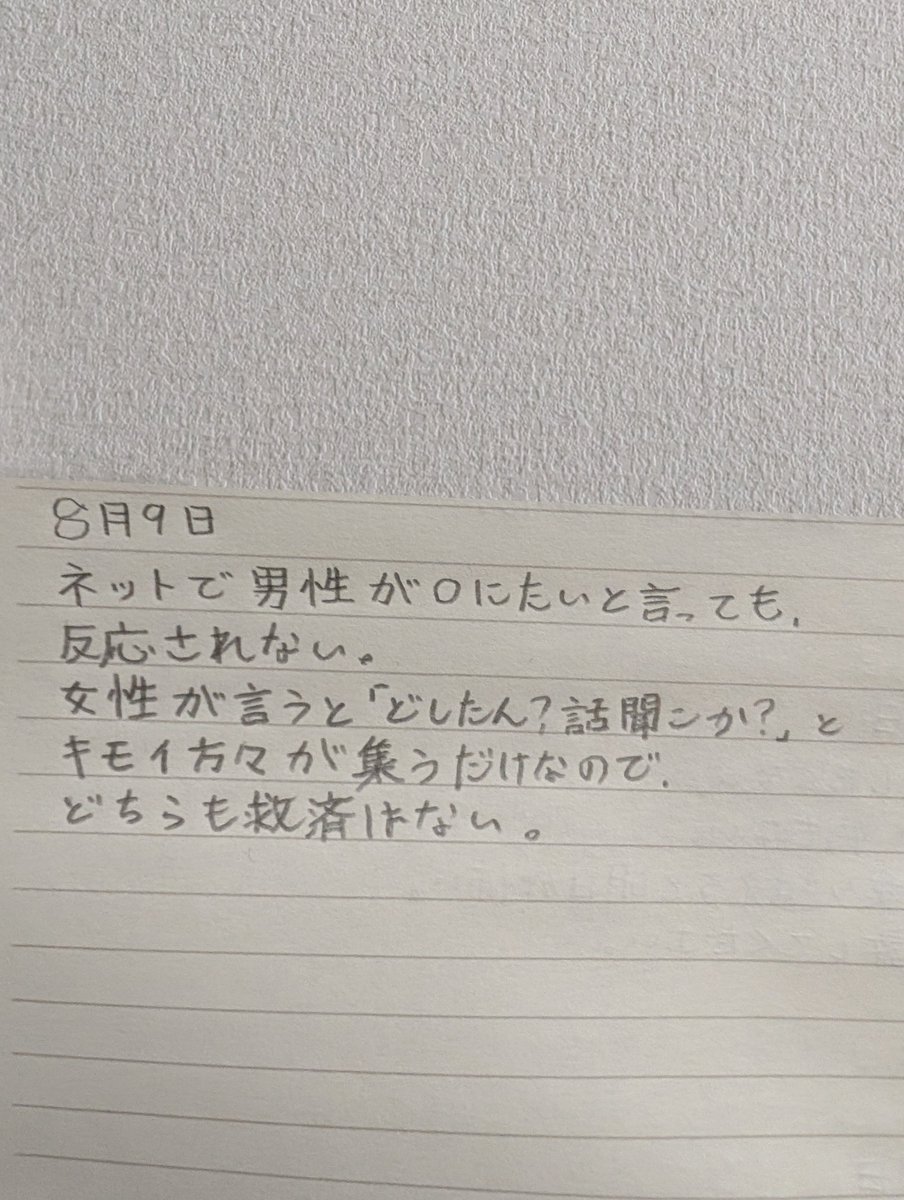 8月9日
ネットで男性が〇にたいと言っても、
反応されない。
女性が言うと「どしたん?話聞こか?」と
キモイ方々が集うだけなので、
どちらも救済はない。